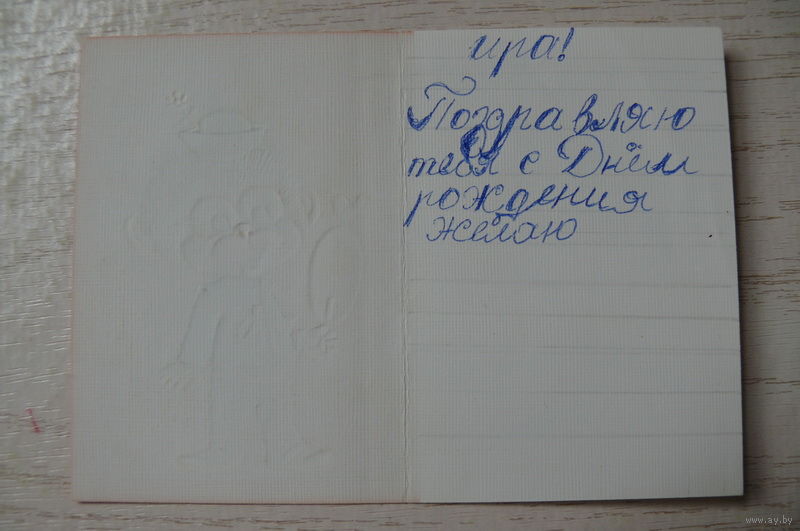 ира!
Поздравляю
тебя с Днём
рождения
желаю
www.ay.by